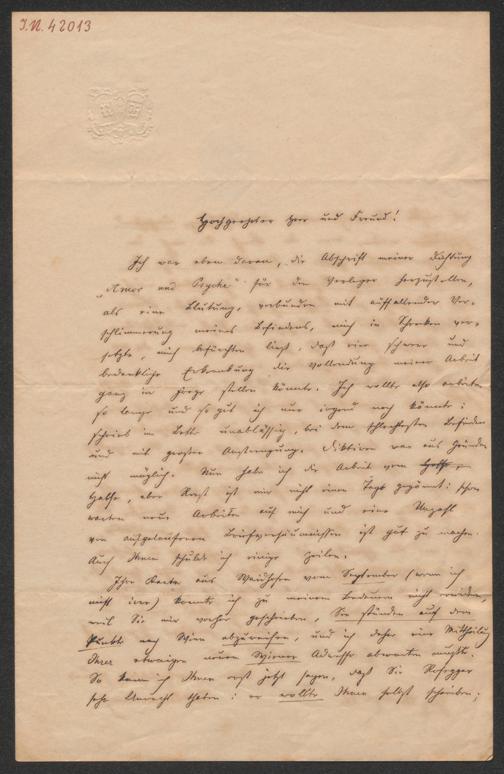 I.N. 42013
Hochgeehrter Herr und Freund!
Ich war eben daran, die Abschrift meiner Dichtung
„Amor und Psyche" für den Verleger herzustellen,
als eine Blutung, verbunden mit auffallender Ver-
schlimmerung meines Befindens, mich in Schrecken ver-
setzte, mich befürchten ließ, daß eine schwere und
bedenkliche Erkrankung die Vollendung meiner Arbeit
ganz in Frage stellen könnte. Ich wollte also arbeiten
so lange und so gut ich nur irgend noch könnte;
schrieb im Bette unablässig, bei dem schlechtesten Befinden
und mit großer Anstrengung. Diktiren war aus Gründen
nicht möglich. Nun habe ich die Arbeit vom
Halse, aber Rast ist mir nicht einen Tag gegönnt: schon
warten neue Arbeiten auf mich und eine Unzahl
von aufgelaufenen Briefversäumnissen ist gut zu machen.
Auch Ihnen schulde ich einige Zeilen.
Ihre Karte aus Waidhofen vom September (wenn ich
nicht irre) konnte ich zu meinem Bedauern nicht
weil Sie mir vorher geschrieben, Sie stünden auf dem
Punkte nach Wien abzureisen, und ich daher eine Mittheilung
Ihrer etwaigen neuen Wiener Adresse abwarten mußte.
So kann ich Ihnen erst jetzt sagen, daß Sie Rosegger
sehr Unrecht thaten: er wollte Ihnen selbst schreiben;